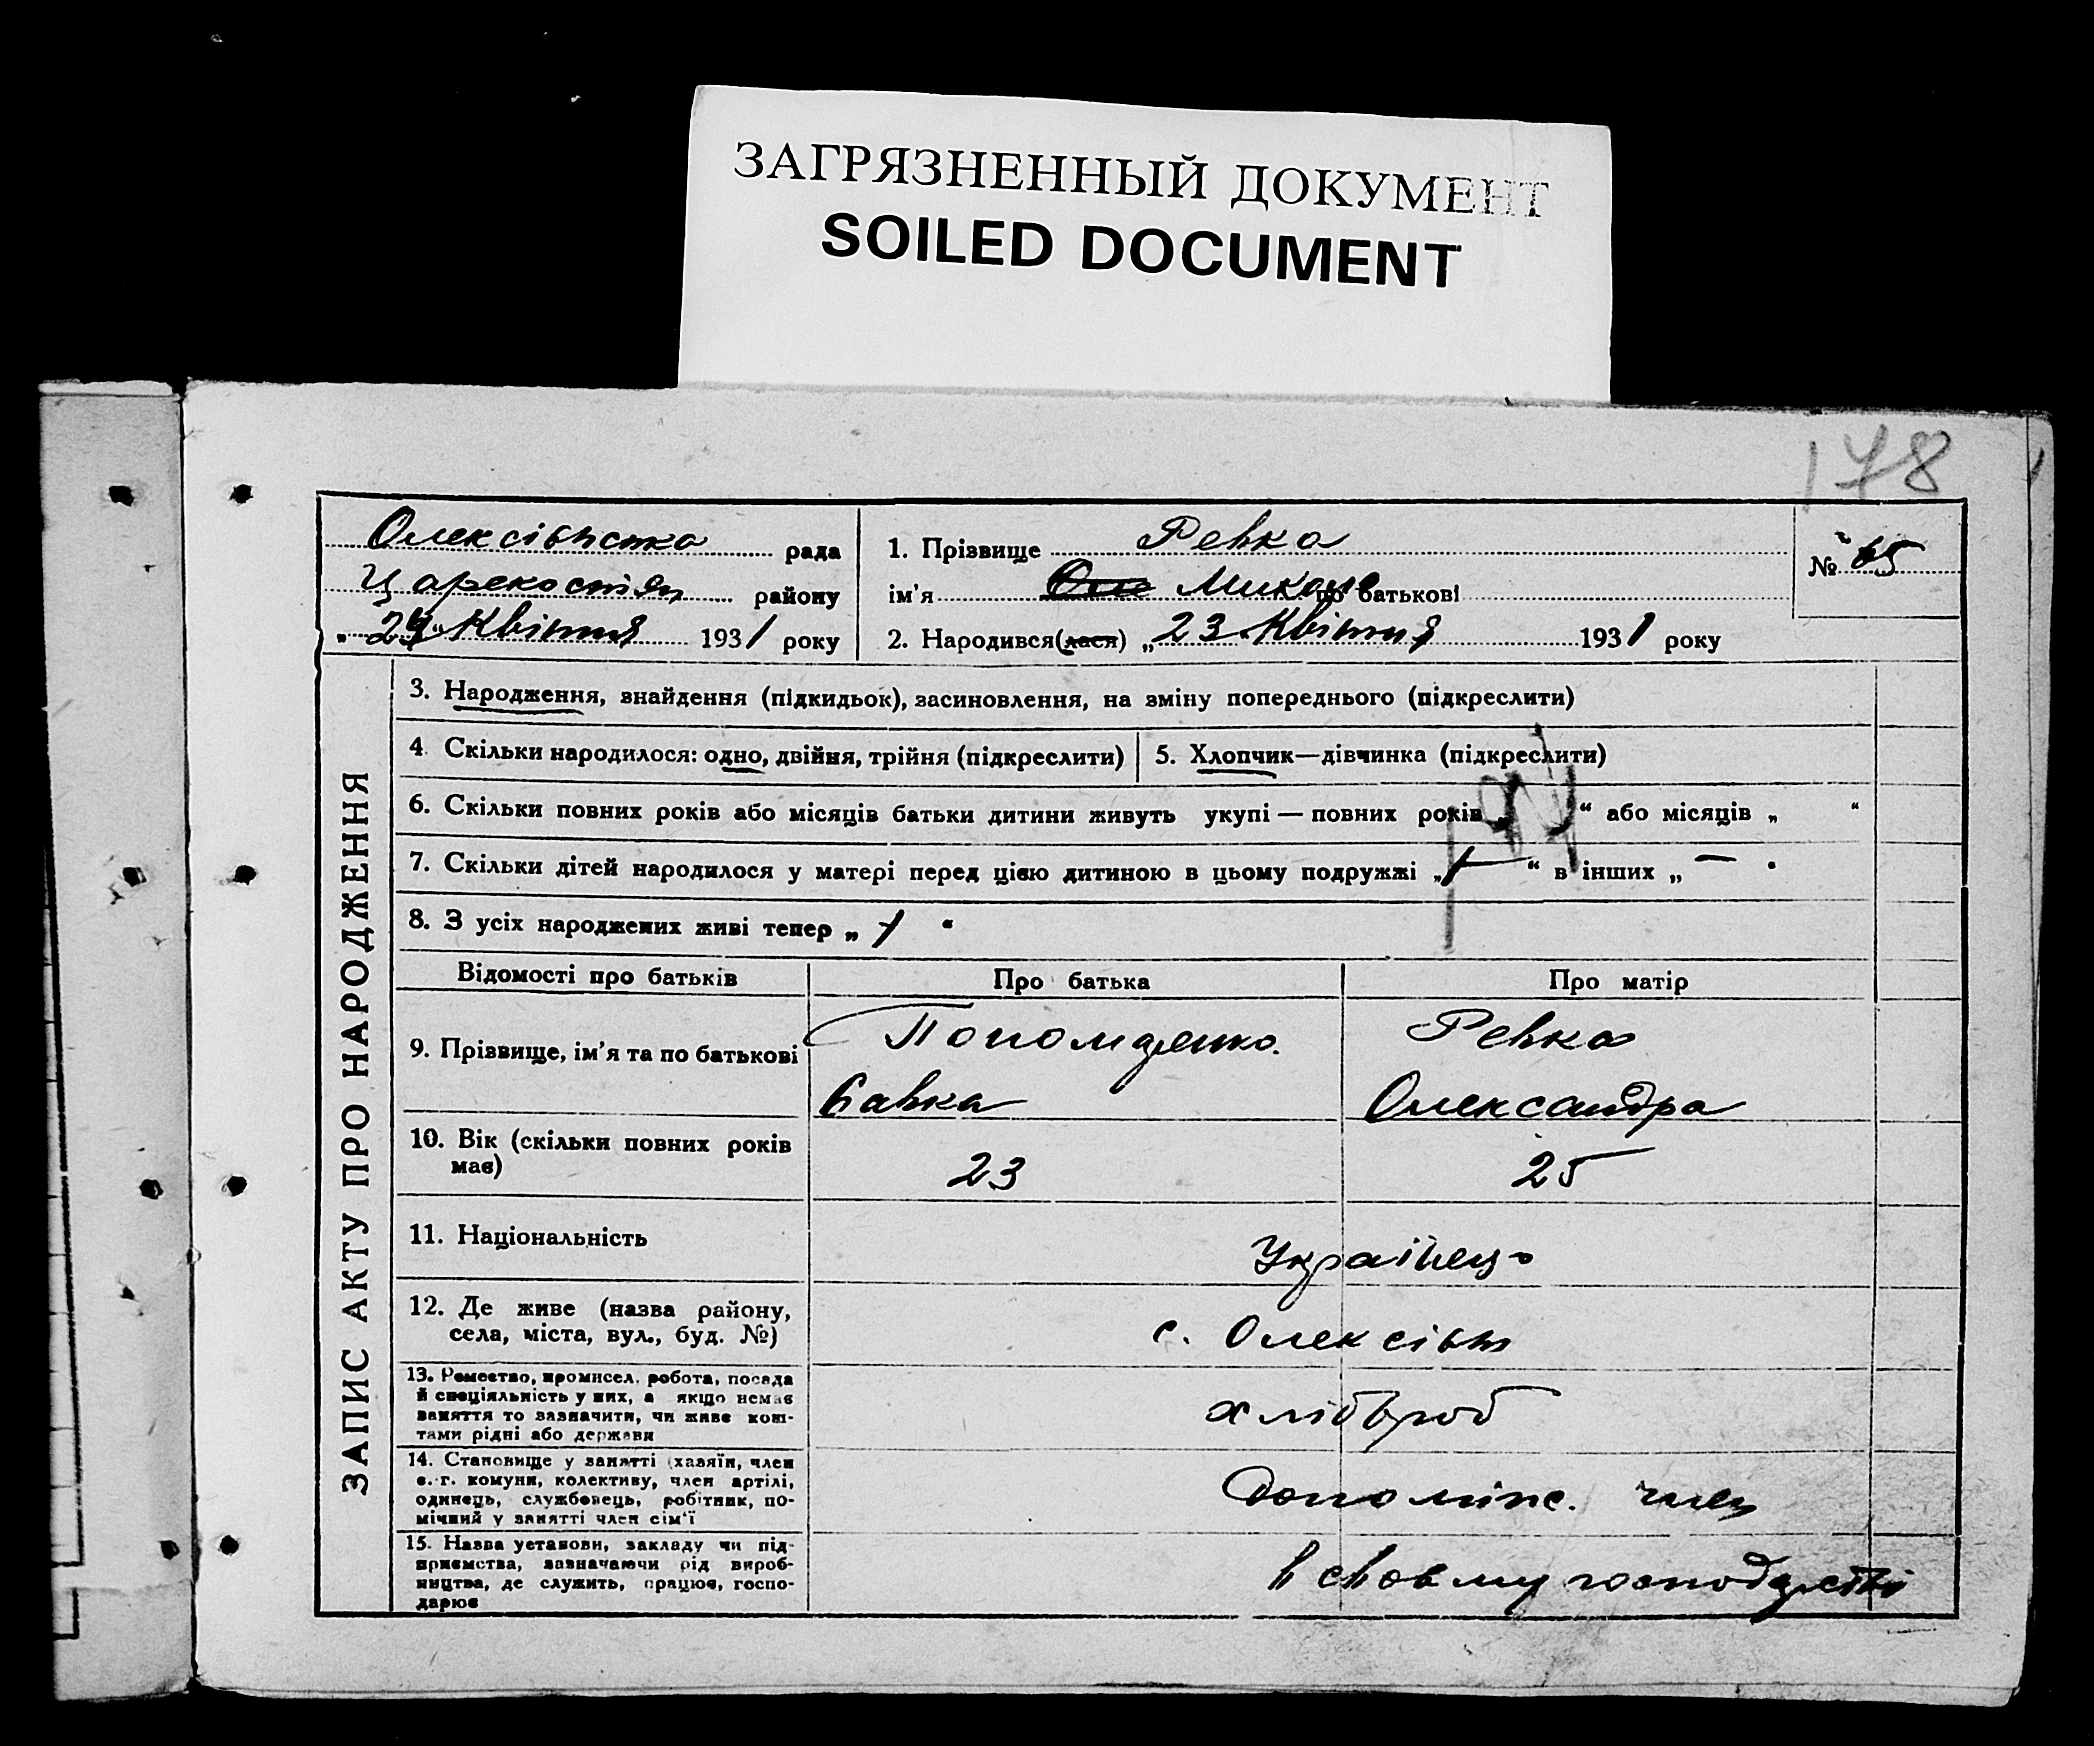 ЗАГРЯЗНЕННЫЙ ДОКУМЕНТ
SOILED DOCUMENT
178
Олексівська рада
Царекостян району
" 24 " Квітня 1931 року
1. Прізвище Ревка
ім'я Микола по батькові
2. Народився(лася) „ 23 Квітня 1931 року
№ 65
ЗАПИС АКТУ ПРО НАРОДЖЕННЯ
3. Народження, знайдення (підкидьок), засиновлення, на зміну попереднього (підкреслити)
4. Скільки народилося: одно, двійня, трійня (підкреслити)
5. Хлопчик—дівчинка (підкреслити)
6. Скільки повних років або місяців батьки дитини живуть укупі — повних років „ “ або місяців „ “
7. Скільки дітей народилося у матері перед цією дитиною в цьому подружжі „ 1 — “ в інших „ — “
8. З усіх народжених живі тепер „ 1 “
Відомості про батьків
Про батька
Про матір
9. Прізвище, ім'я та по батькові
Пономаренко
Савка
Ревка
Олександра
10. Вік (скільки повних років
має)
23
25
11. Національність
Українець
12. Де живе (назва району,
села, міста, вул., буд. №)
с. Олексівк
13. Ремество, промисел, робота, посада
й спеціяльність у них, а якщо немає
заняття то зазначити, чи живе кош-
тами рідні або держави
хлібороб
14. Становище у занятті (хазяїн, член
с.-г. комуни, колективу, член артілі,
одинець, службовець, робітник, по-
мічний у занятті член сім'ї
допоміж. член
15. Назва установи, закладу чи під-
приємства, зазначаючи рід вироб-
ництва, де служить, працює, госпо-
дарює
в своєму господарстві